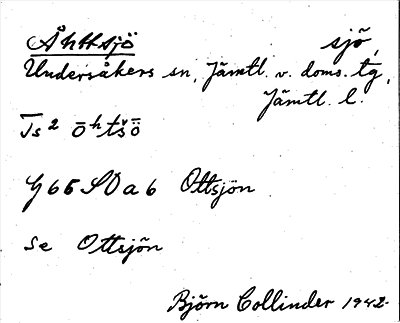 Åhttsjö sjö,
Undersåkers sn, Jämtl. v. doms. tg,
Jämtl. l.
Ts² ōʰtšō̈
G 65 SO a 6 Ottsjön
Se Ottsjön
Björn Collinder 1942.